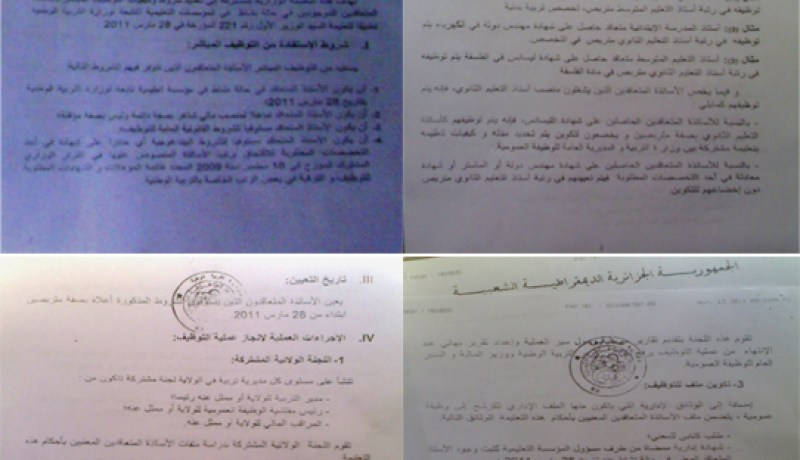 المتعاقدين الموجودين في حالة نشاط في المؤسسات التعليمية التابعة لوزارة التربية الوطنية
تطبيقا لتعليمة السيد الوزير الأول رقم 221 المؤرخة في 28 مارس 2011
I. شروط الإستفادة من التوظيف المباشر:
يستفيد من التوظيف المباشر الأساتذة المتعاقدون الذين تتوفر فيهم الشروط التالية:
1- أن يكون الأستاذ المتعاقد في حالة نشاط في مؤسسة تعليمية تابعة لوزارة التربية الوطنية
بتاريخ 28 مارس 2011؛
2- أن يكون الأستاذ المتعاقد شاغلا لمنصب مالي شاغر بصفة دائمة وليس بصفة مؤقتة؛
3- أن يكون الأستاذ المتعاقد مستوفيا للشروط القانونية العامة للتوظيف؛
4- أن يكون الأستاذ المتعاقد مستوفيا للشروط البيداغوجية أي حائزا على شهادة في أحد
التخصصات المطلوبة للالتحاق برتب الأساتذة المنصوص عليها في القرار الوزاري
المشترك المؤرخ في سبتمبر سنة 2009 المحدد قائمة المؤهلات و الشهادات المطلوبة
للتوظيف و الترقية في بعض الرتب الخاصة بالتربية الوطنية.
توظيفه في رتبة أستاذ التعليم المتوسط متربص، تخصص تربية بدنية
مثال (2): أستاذ المدرسة الإبتدائية متعاقد حاصل على شهادة مهندس دولة في الكهرباء يتم
توظيفه في رتبة أستاذ التعليم الثانوي متربص في التخصص.
مثال (3): أستاذ التعليم المتوسط متعاقد حاصل على شهادة ليسانس في الفلسفة يتم توظيفه
في رتبة أستاذ التعليم الثانوي متربص في مادة الفلسفة
و فيما يخص الأساتذة المتعاقدين الذين يشغلون مناصب أستاذ التعليم الثانوي، فإنه يتم
توظيفهم كمايلي:
- بالنسبة للأساتذة المتعاقدين الحاصلين على شهادة الليسانس، فإنه يتم توظيفهم كأساتذة
التعليم الثانوي بصفة متربصين و يخضعون لتكوين يتم تحديد مدته و كيفيات تنظيمه
بتعليمة مشتركة بين وزارة التربية و المديرية العامة للوظيفة العمومية.
- بالنسبة للأساتذة المتعاقدين الحاصلين على شهادة مهندس دولة أو الماستر أو شهادة
معادلة في أحد التخصصات المطلوبة فيتم تعيينهم في رتبة أستاذ التعليم الثانوي متربص
دون إخضاعهم للتكوين.
III. تاريخ التعيين:
يعين الأساتذة المتعاقدون الذين يستوفون الشروط المذكورة أعلاه بصفة متربصين
ابتداء من 28 مارس 2011.
IV. الإجراءات العملية لإنجاز عملية التوظيف:
1- اللجنة الولائية المشتركة:
تنشأ على مستوى كل مديرية تربية في الولاية لجنة مشتركة تتكون من :
- مدير التربية للولاية أو ممثل عنه رئيسا؛
- رئيس مفتشية الوظيفة العمومية للولاية أو ممثل عنه؛
- المراقب المالي للولاية أو ممثل عنه.
تقوم اللجنة الولائية المشتركة بدراسة ملفات الأساتذة المتعاقدين المعنيين بأحكام هذه
التعليمة
الجمهورية الجزائرية الديمقراطية الشعبية
تقوم هذه اللجنة بتقديم تقارير حول سير العملية وإعداد تقرير نهائي عند
الإنتهاء من عملية التوظيف التربية الوطنية ووزير المالية و المدير
العام للوظيفة العمومية.
3- تكوين ملف التوظيف:
إضافة إلى الوثائق الإدارية التي يتكون منها الملف الإداري للترشح إلى وظيفة
عمومية - يتضمن ملف الأساتذة المتعاقدين المعنيين بأحكام هذه التعليمة الوثائق التالية:
- طلب كتابي للمعني؛
- شهادة إدارية ممضاة من طرف مسؤول المؤسسة التعليمية تثبت وجود الأستاذ